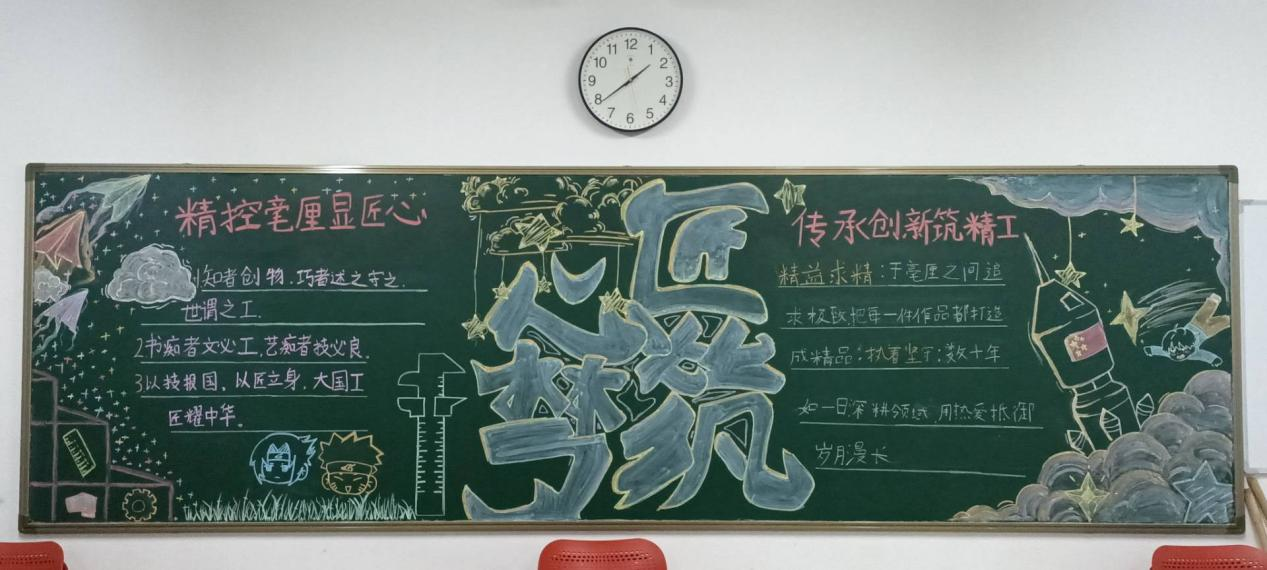 12
1
2
3
4
5
6
7
8
9
10
11
精控毫厘显匠心
知者创物.巧者述之守之.
世谓之工.
2书痴者文必工,艺痴者技必良.
3以技报国,以匠立身,大国工
匠耀中华。
匠心
筑梦
传承创新筑精工
精益求精:于毫厘之间追
求极致,把每一件作品都打造
成精品;执着坚守:数十年
如一日深耕领域,用热爱抵御
岁月漫长